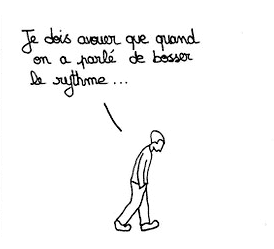 Je dois avouer que quand
on a parlé de bosser
le rythme...